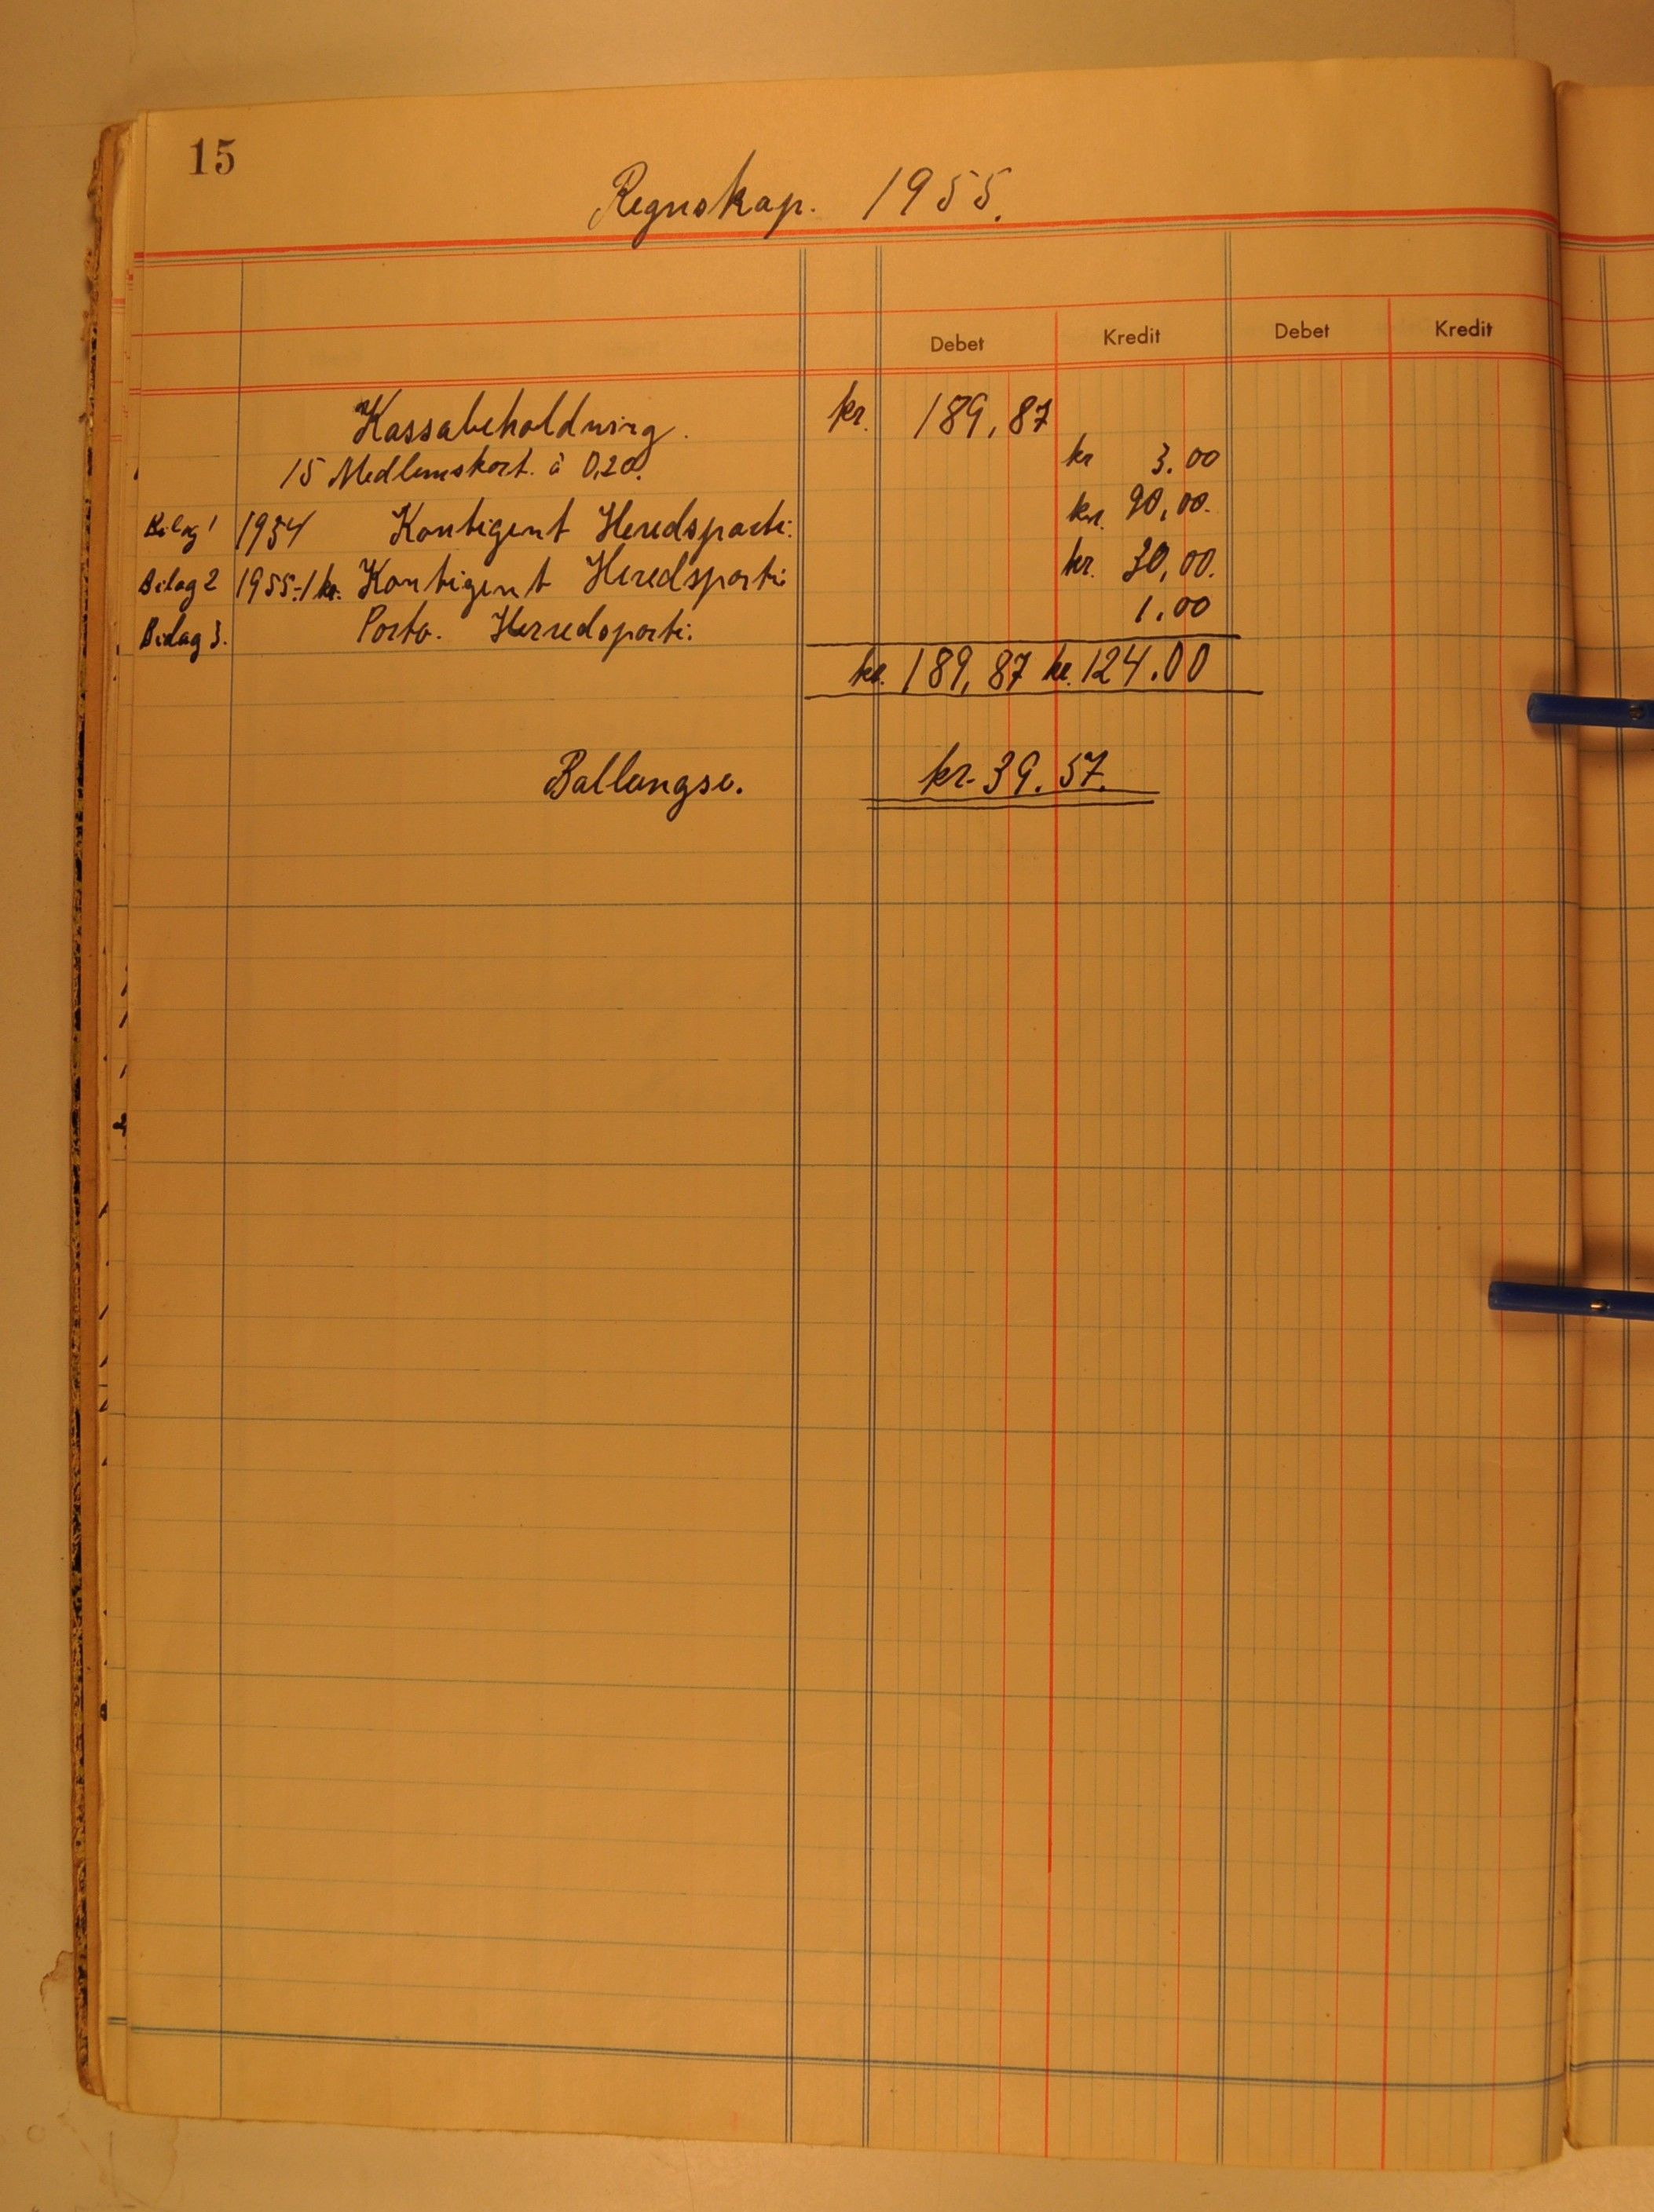 15
Regnskap. 1955.
Debet Kredit Debet Kredit
Kassabeholdning. kr. 189,87
15 Medlemskort. à 0,20. kr 3.00
Bilag 1 1954 Kontigent Heredsparti. kr. 90,00.
Bilag 2 1955-1 kr. Kontigent Heredsparti kr. 30,00.
Bilag 3. Porto. Herredsparti. 1.00
kr. 189,87 kr. 124.00
Ballangse. kr. 39.57.